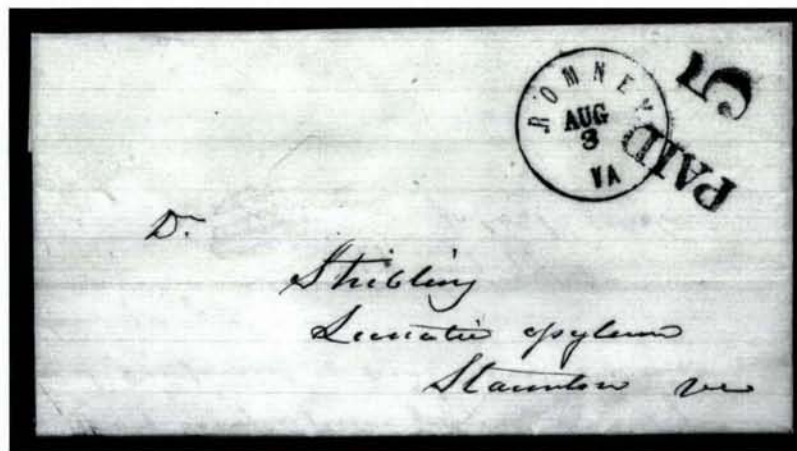 ROMNEY
AUG
3
VA
PAID
5
Dr
Stribling
Lunatic Asylum
Staunton va